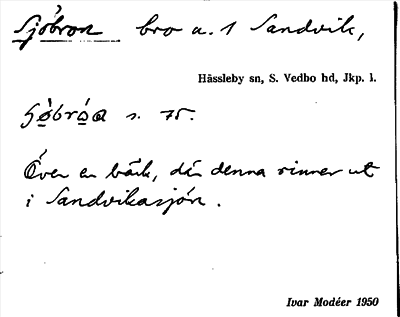 Sjöbron bro a. 1 Sandvik,
Hässleby sn, S. Vedbo hd, Jkp. l.
s. 75.
Över en bäck, där denna rinner ut
i Sandvikasjön.
Ivar Modéer 1950